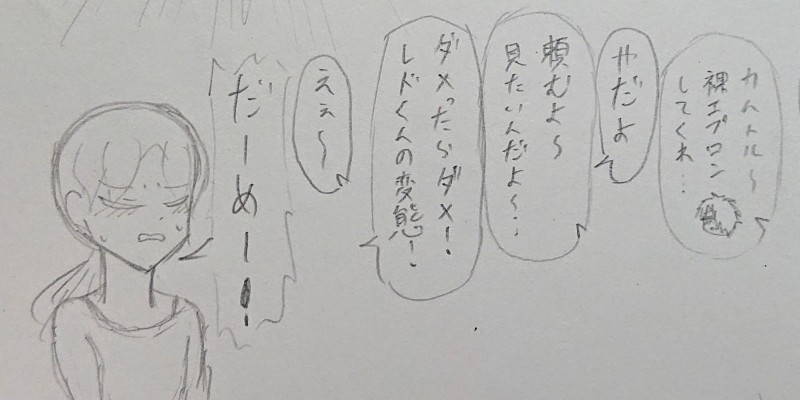 カムトル〜
裸エプロン
してくれ…
やだよ
頼むよ〜
見たいんだよ〜…
ダメったらダメ！
レドくんの変態！
えぇ〜
だーめー！